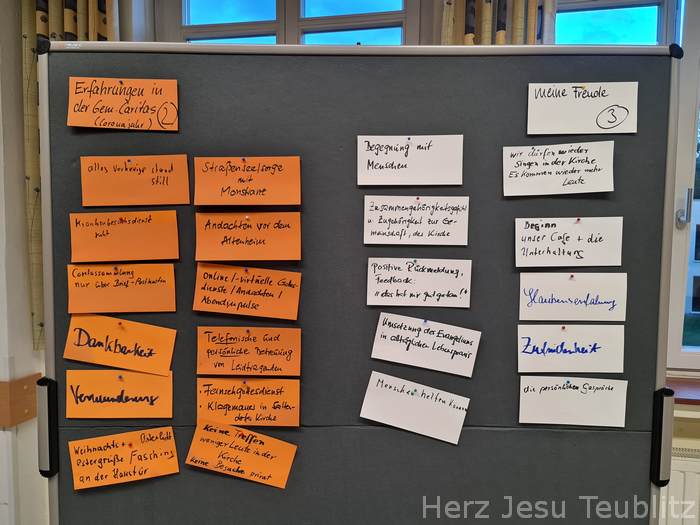 Erfahrungen in
der Gem. Caritas
(Coronajahr) 2
alles Vorherige stand
still
Krankenbesuchsdienst
ruht
Caritassammlung
nur über Brief-Postkarten
Dankbarkeit
Verwunderung
Weihnachts- +
Ostergrüße Fasching
an der Haustür
Straßenseelsorge
mit
Monstranz
Andachten vor dem
Altenheim
Online/-virtuelle Gottes-
dienste/Andachten/
Abendimpulse
Telefonische und
persönliche Betreuung
von Leidtragenden
• Fernsehgottesdienst
• Klagemauer in
Kirche
Keine Treffen
weniger Leute in der
Kirche
keine Besuche privat
Begegnung mit
Menschen
Zusammengehörigkeitsgefühl
u. Zugehörigkeit zur Ge-
meinschaft, der Kirche
Positive Rückmeldung,
Feedback:
"das hat mir gut getan!"
Umsetzung des Evangeliums
in alltäglicher Lebenspraxis
Menschen helfen können
meine Freude
3
wir dürfen wieder
singen in der Kirche
Es kommen wieder mehr
Leute
Beginn
unser Cafe + die
Unterhaltung
Glaubenserfahrung
Zufriedenheit
die persönlichen Gespräche
Herz Jesu Teublitz